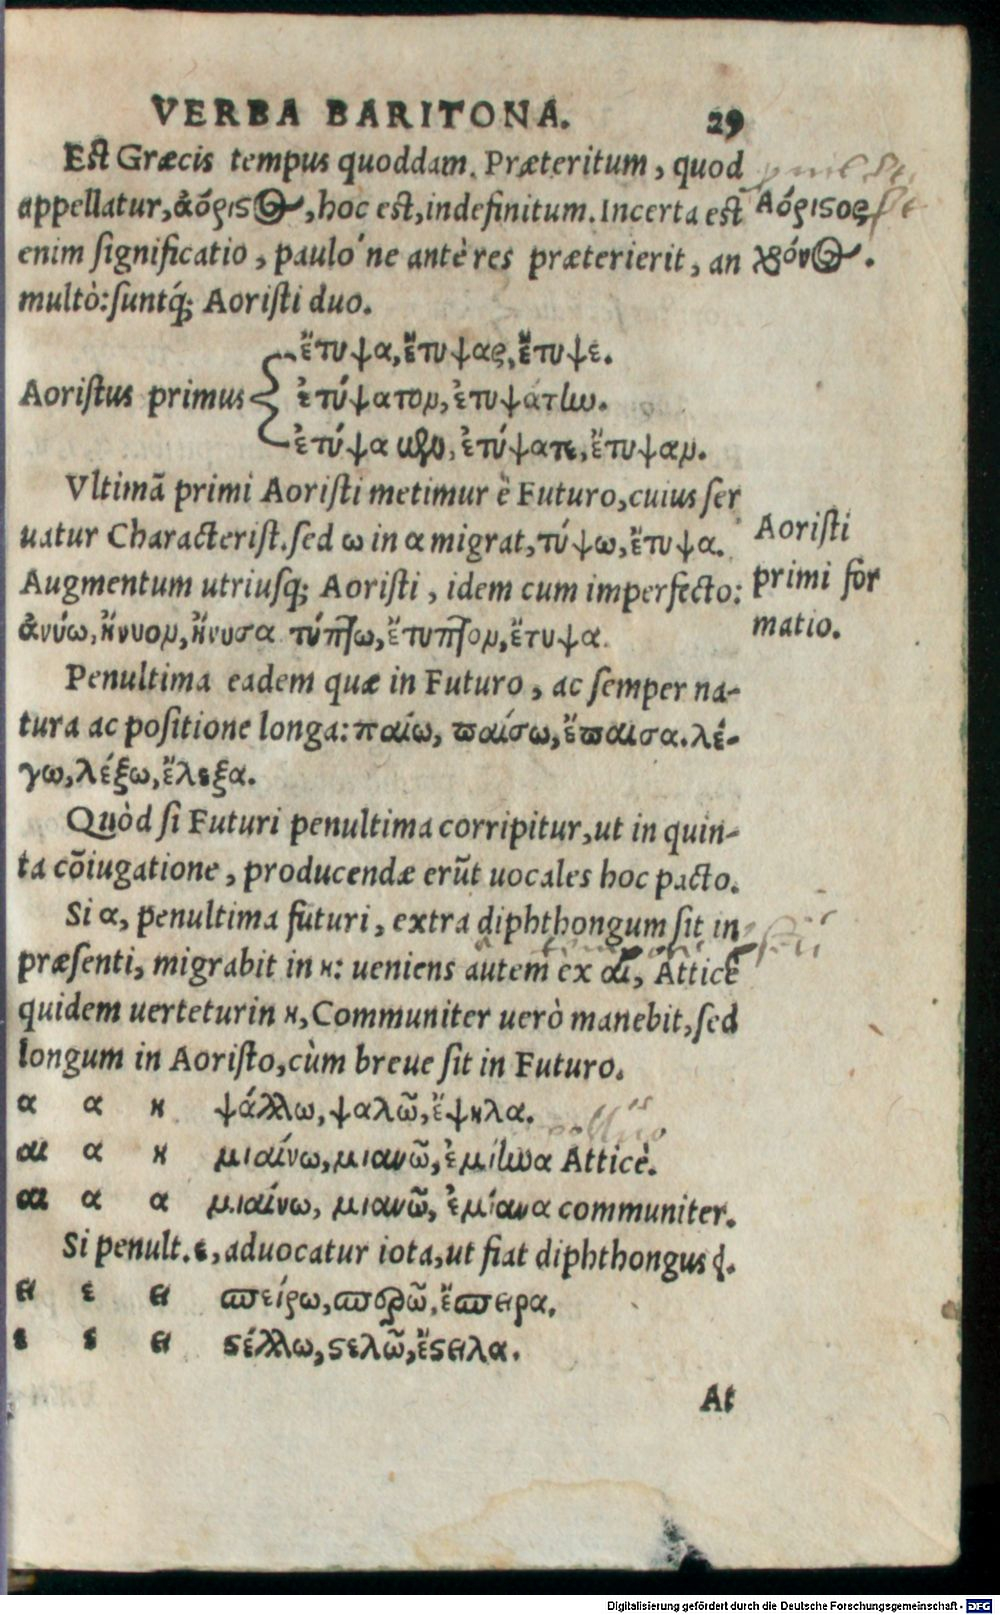 VERBA BARITONA. 29
Est Græcis tempus quoddam Præteritum, quod
appellatur, ἀόριϛος, hoc est, indefinitum. Incerta est
enim significatio, paulo´ne antè res præterierit, an
multò: suntq́; Aoristi duo.
Ἀόριϛος
χρόνος.
ἔτυψα, ἔτυψας, ἔτυψε.
Aoristus primus ἐτύψατον, ἐτυψάτην.
ἐτύψαμεν, ἐτύψατε, ἔτυψαν.
Vltimã primi Aoristi metimur è Futuro, cuius ser
uatur Characterist. sed ω in α migrat, τύψω, ἔτυψα.
Augmentum utriusq; Aoristi, idem cum imperfecto:
ἀνύω, ἤνυον, ἤνυσα τύπτω, ἔτυπτον, ἔτυψα.
Aoristi
primi for
matio.
Penultima eadem quæ in Futuro, ac semper na-
tura ac positione longa: παίω, παίσω, ἔπαισα. λέ-
γω, λέξω, ἔλεξα.
Quòd si Futuri penultima corripitur, ut in quin-
ta cõiugatione, producendæ erũt uocales hoc pacto.
Si α, penultima futuri, extra diphthongum sit in
præsenti, migrabit in η: ueniens autem ex αι, Atticè
quidem uertetur in η, Communiter uerò manebit, sed
longum in Aoristo, cùm breue sit in Futuro.
α α η ψάλλω, ψαλῶ, ἔψηλα.
αι α η μιαίνω, μιανῶ, ἐμίηνα Atticè.
αι α α μιαίνω, μιανῶ, ἐμίανα communiter.
Si penult. ε, aduocatur iota, ut fiat diphthongus ει.
ει ε ει σπείρω, σπερῶ, ἔσπειρα.
ε ε ει ϛέλλω, ϛελῶ, ἔϛειλα.
At
Digitalisierung gefördert durch die Deutsche Forschungsgemeinschaft - DFG